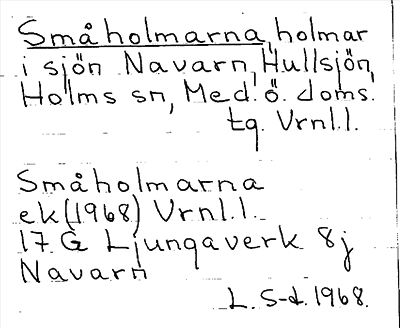 Småholmarna, holmar
i sjön Navarn, Hullsjön,
Holms sn, Med. ö. doms.
tg. Vrnl.l.
Småholmarna
ek (1968) Vrnl.l.
17 G Ljungaverk 8j
Navarn
L. S-d. 1968.